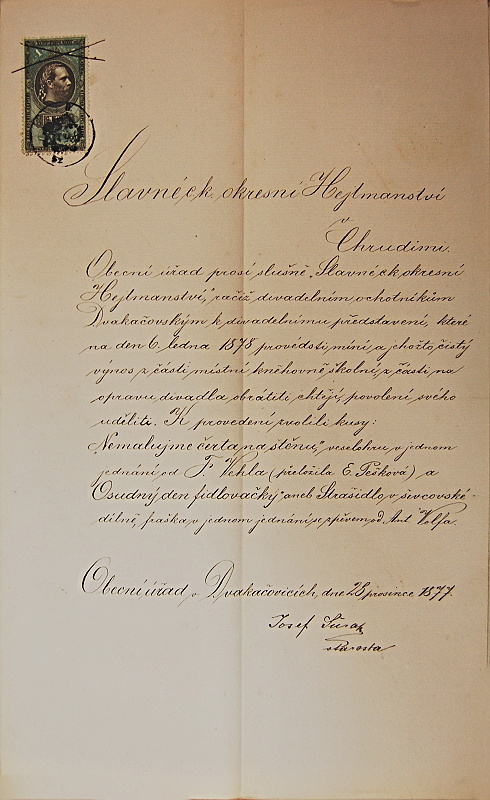 Slavné c.k. okresní Hejtmanství
v
Chrudimi.
Obecní úřad prosí slušně „Slavné c.k. okresní
Hejtmanství," račiž divadelním ochotníkům
Dvakačovským k divadelnímu představení, které
na den 6. ledna 1878 provésti míní a jehožto čistý
výnos z části místní kněhovně školní, z části na
opravu divadla obrátiti chtějí, povolení svého
uděliti. K provedení zvolili kusy:
„Nemalujme čerta na stěnu," veselohru v jednom
jednání od F. Wehla (přeložila E. Pešková) a
Osudný den fidlovačky aneb Strašidlo v ševcovské
dílně, fraška v jednom jednání se zpěvem od Ant. Volfa.
Obecní úřad v Dvakačovicích, dne 28 prosince 1877.
Josef
starosta